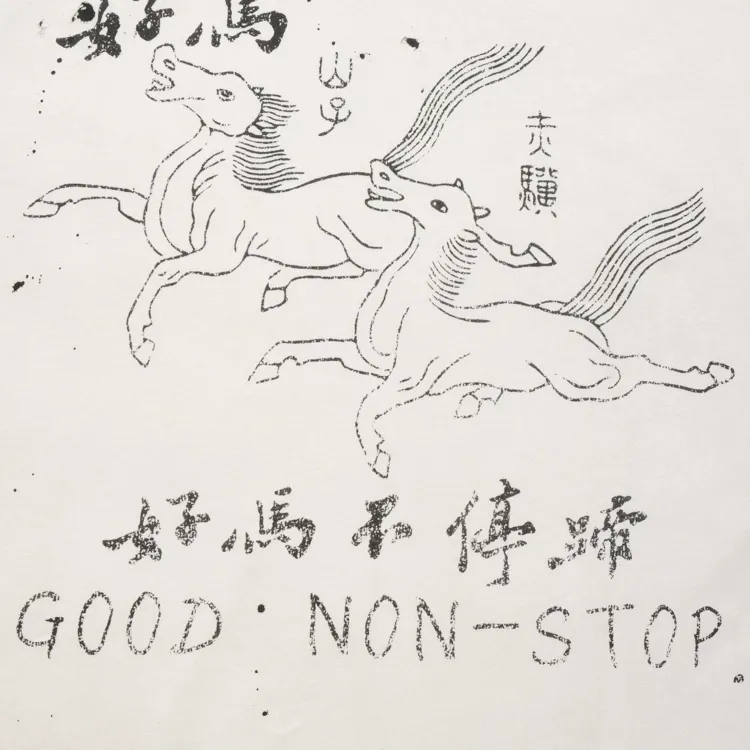 好馬
山子
赤驥
好馬不停蹄
GOOD · NON-STOP